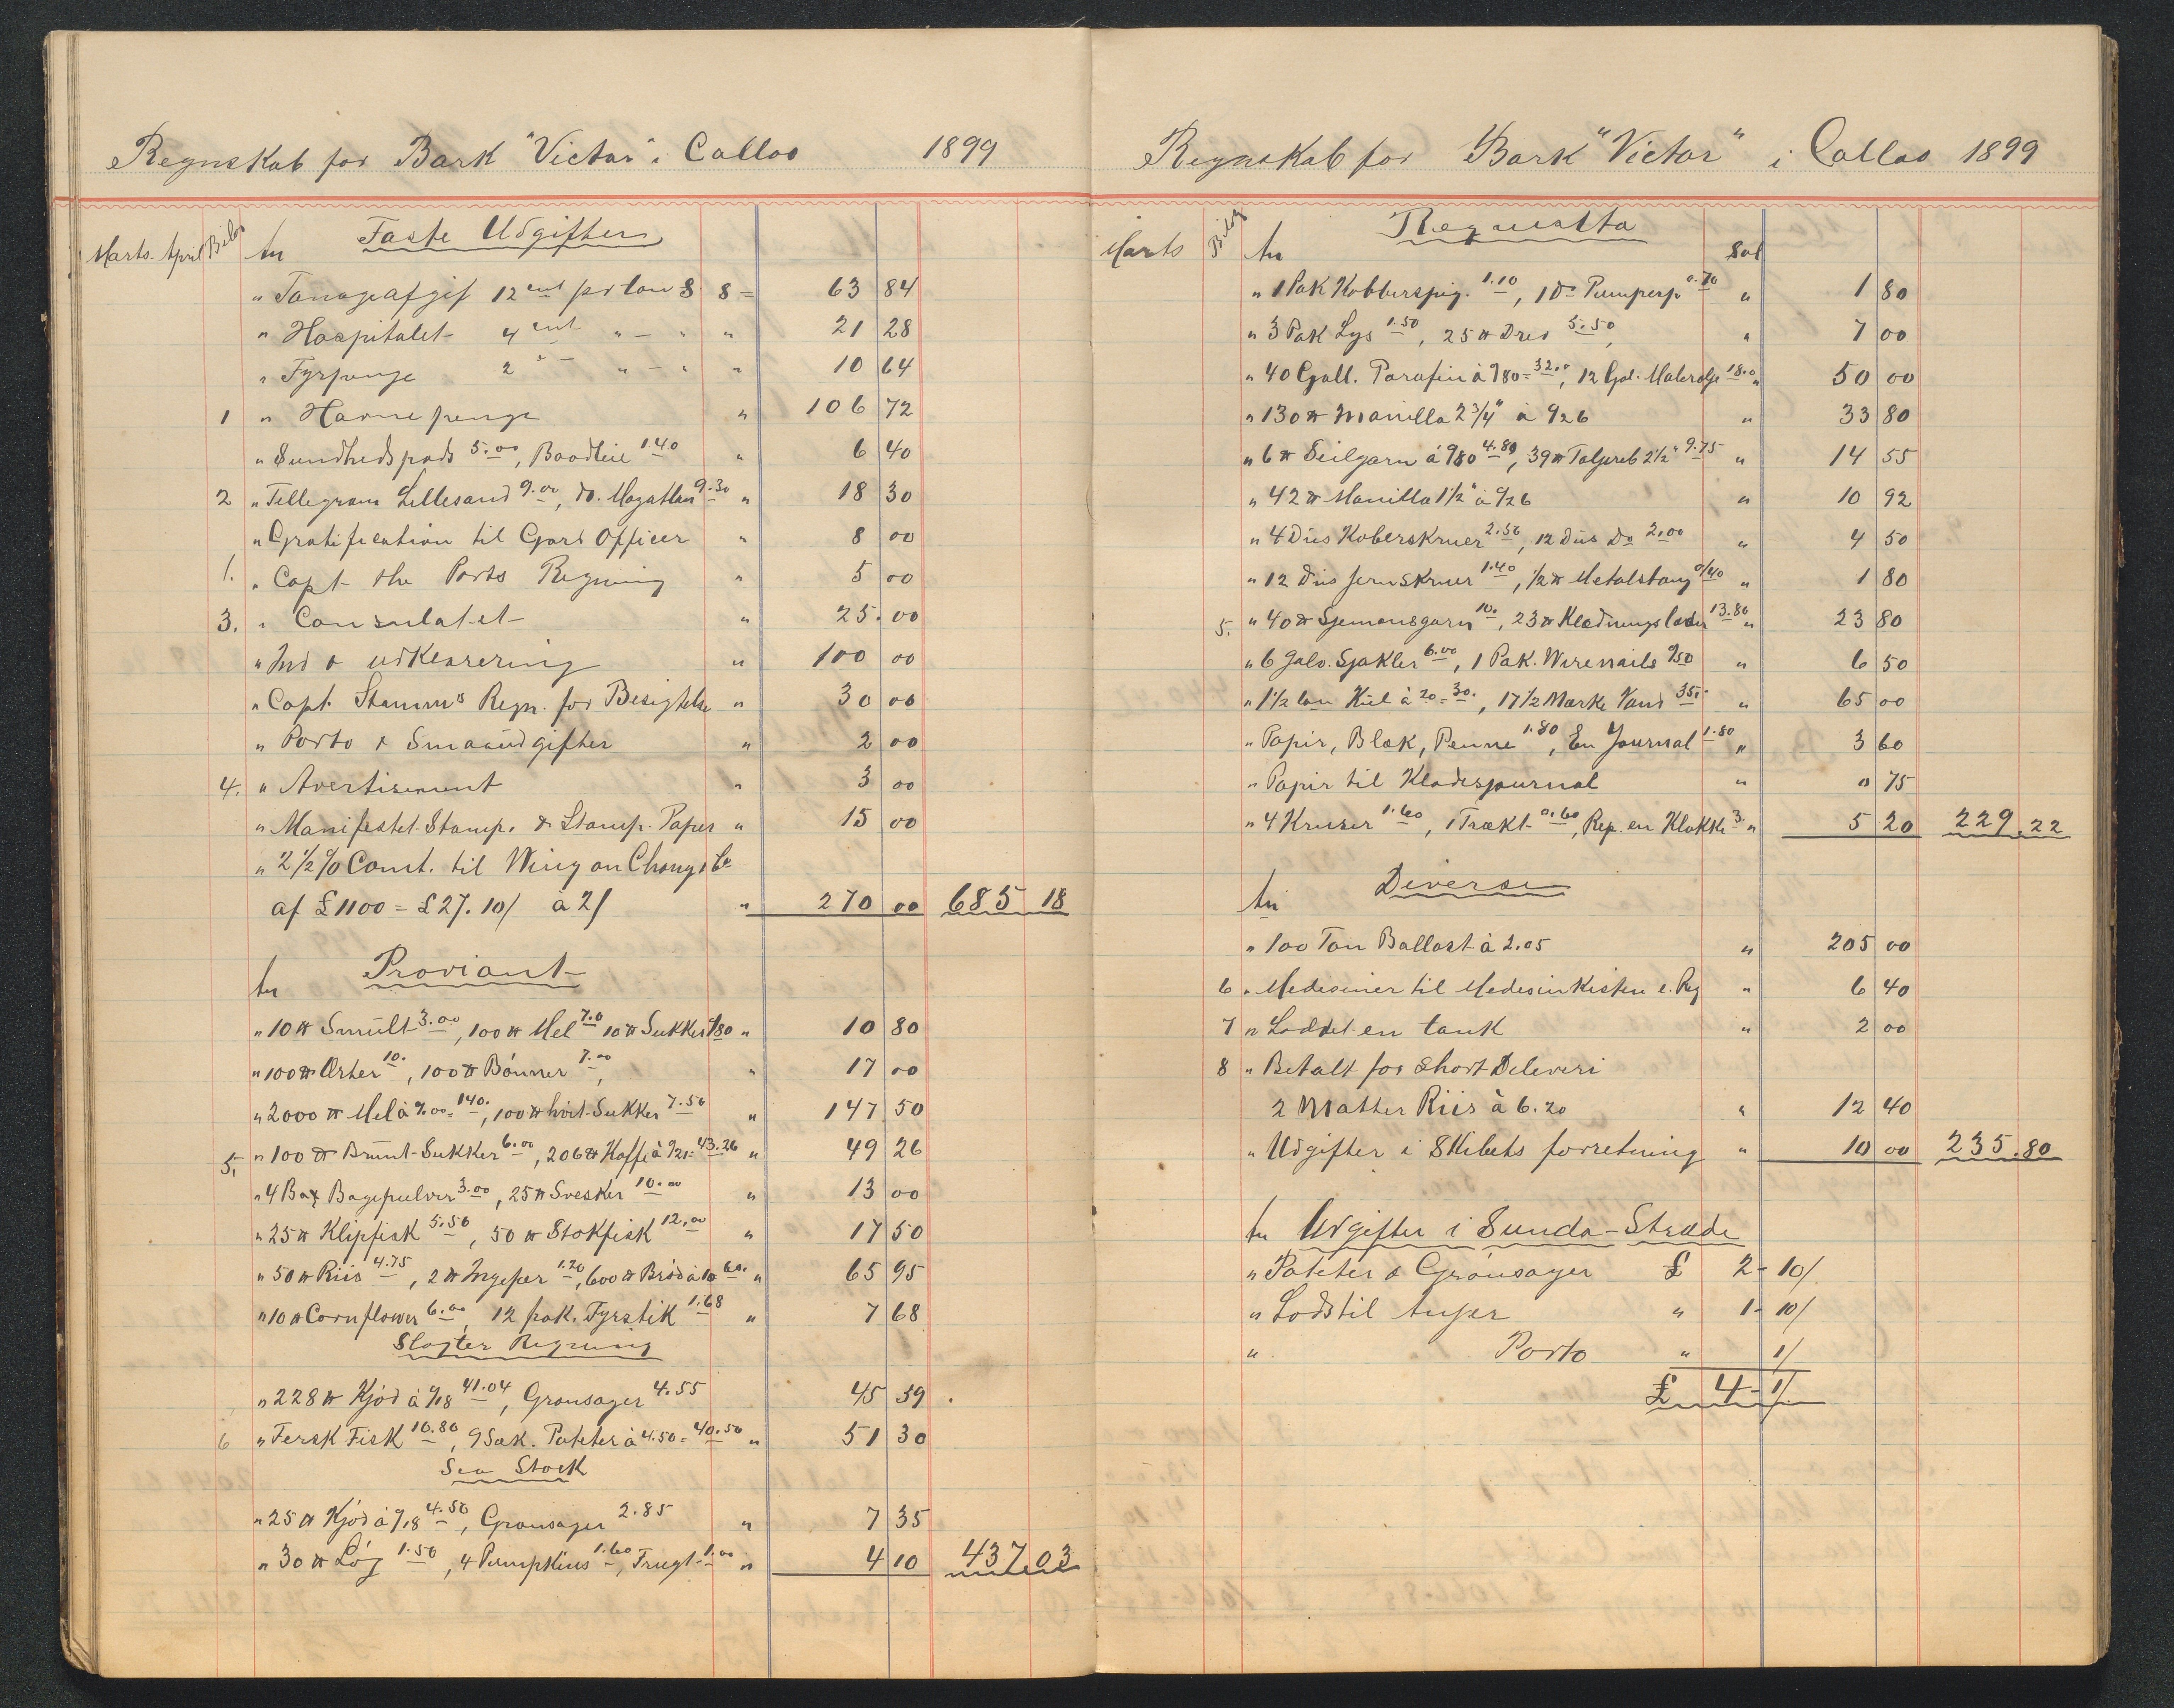 Regnskab for Bark "Victor" i Callao 1899
Marts. April Bilag An Faste Udgifter
" Tonageafgif 12 cent pr ton S. 8 = 63 84
" Hospitalet 4 cent " - " " 21 28
" Fyrpenge 2 " - " - " " 10 64
1 " Havnepenge " 106 72
" Sundhedspads 5.00, Baadleie 1.40 " 6 40
2 " Tellegram Lillesand 9.00, do. Mazatlan 9.30 " 18 30
" Gratification til Gard Officer " 8 00
1. " Capt the Ports Regning " 5 00
3. " Consulatet " 25.00
" Ind & udklarering " 100 00
" Capt. Stamms Regn. for Besigtelse " 30 00
" Porto & Smaaudgifter " 2 00
4. " Avertisement " 3 00
" Manifestet. Stamp. & Stamp. Paper " 15 00
" 2 1/2 % Comt. til Wing on Chong & Co
af £1100 = £27. 10/ à 2/ " 270 00 685 18
An Proviant
" 10 ℔ Smult 3.00, 100 ℔ Mel 7.0 10 ℔ Sukker 0/80 " 10 80
" 100 ℔ Erter 10., 100 ℔ Bönner 7.00, " 17 00
" 2000 ℔ Mel à 7.00 = 140., 100 ℔ hvit Sukker 7.50 " 147 50
5. " 100 ℔ Brunt-Sukker 6.00, 206 ℔ Kaffe à 0/21 = 43.26 " 49 26
" 4 Box Bagepulver 3.00, 25 ℔ Svesker 10.00 " 13 00
" 25 ℔ Klipfisk 5.50, 50 ℔ Stokfisk 12.00 " 17 50
" 50 ℔ Riis 4.75, 2 ℔ Ingefer 1.20, 600 ℔ Bröd à 10 60. " 65 95
" 10 ℔ Cornflower 6.00, 12 pak. Fyrstik 1.68 " 7 68
Slagter Regning
" 228 ℔ Kjöd à 0/18 41.04, Grönsager 4.55 45 59.
6 " Fersk Fisk 10.80, 9 Sæk. Poteter à 4.50 = 40.50 " 51 30
Sea Stock
" 25 ℔ Kjöd à 0/18 4.50, Grönsager 2.85 " 7 35
" 30 ℔ Lög 1.50, 4 Pumpkins 1.60, Frugt 1.00 " 4 10 437.03
Regnskab for Bark "Victor" i Callao 1899
Marts Bilag An Requisita Sol
" 1 Pak Kobberspig. 1.10, 1 Do Pumpesp. 0.70 " 1 80
" 3 Pak Lys 1.50, 25 ℔ Drev 5.50, " 7 00
" 40 Gall. Parafin à 0/80 = 32.00, 12 Gal. Malerolje 18.00 " 50 00
" 130 ℔ Manilla 2 3/4" à 0/26 " 33 80
" 6 ℔ Seilgarn à 0/80 4.80, 39 ℔ Taljereb 2 1/2" 9.75 " 14 55
" 42 ℔ Manilla 1 1/2" à 0/26 " 10 92
" 4 Dus Koberskruer 2.50, 12 Dus Do 2.00 " 4 50
" 12 Dus jernskruer 1.40, 1/2 ℔ Metalstang 0/40 " 1 80
5. " 40 ℔ Sjemansgarn 10., 23 ℔ Klædningslæder 13.80 " 23 80
" 6 Galv. Sjakler 6.00, 1 Pak. Wirenails 0/50 " 6 50
" 1 1/2 ton Kul à 20 = 30., 17 1/2 Marke Vand 35. " 65 00
" Papir, Blæk, Penne 1.80, En Journal 1.80 " 3 60
" Papir til Kladejournal " 0 75
" 4 Kruser 1.60, 1 Trækt 0.60, Rep. en Klokke 3. " 5 20 229.22
An Diverse
" 100 Ton Ballast à 2.05 " 205 00
6 " Medesiner til Medesinkisten e. Reg " 6 40
7 " Loddet en tank " 2 00
8 " Betalt for Short Deleveri
2 Matter Riis à 6.20 " 12 40
" Udgifter i Skibets forretning " 10 00 235.80
An Udgifter i Sunda-Stræde
" Poteter & Grönsager £ 2 - 10/
" Lods til Anjer " 1 - 10/
" Porto " 1/
£ 4 - 1/